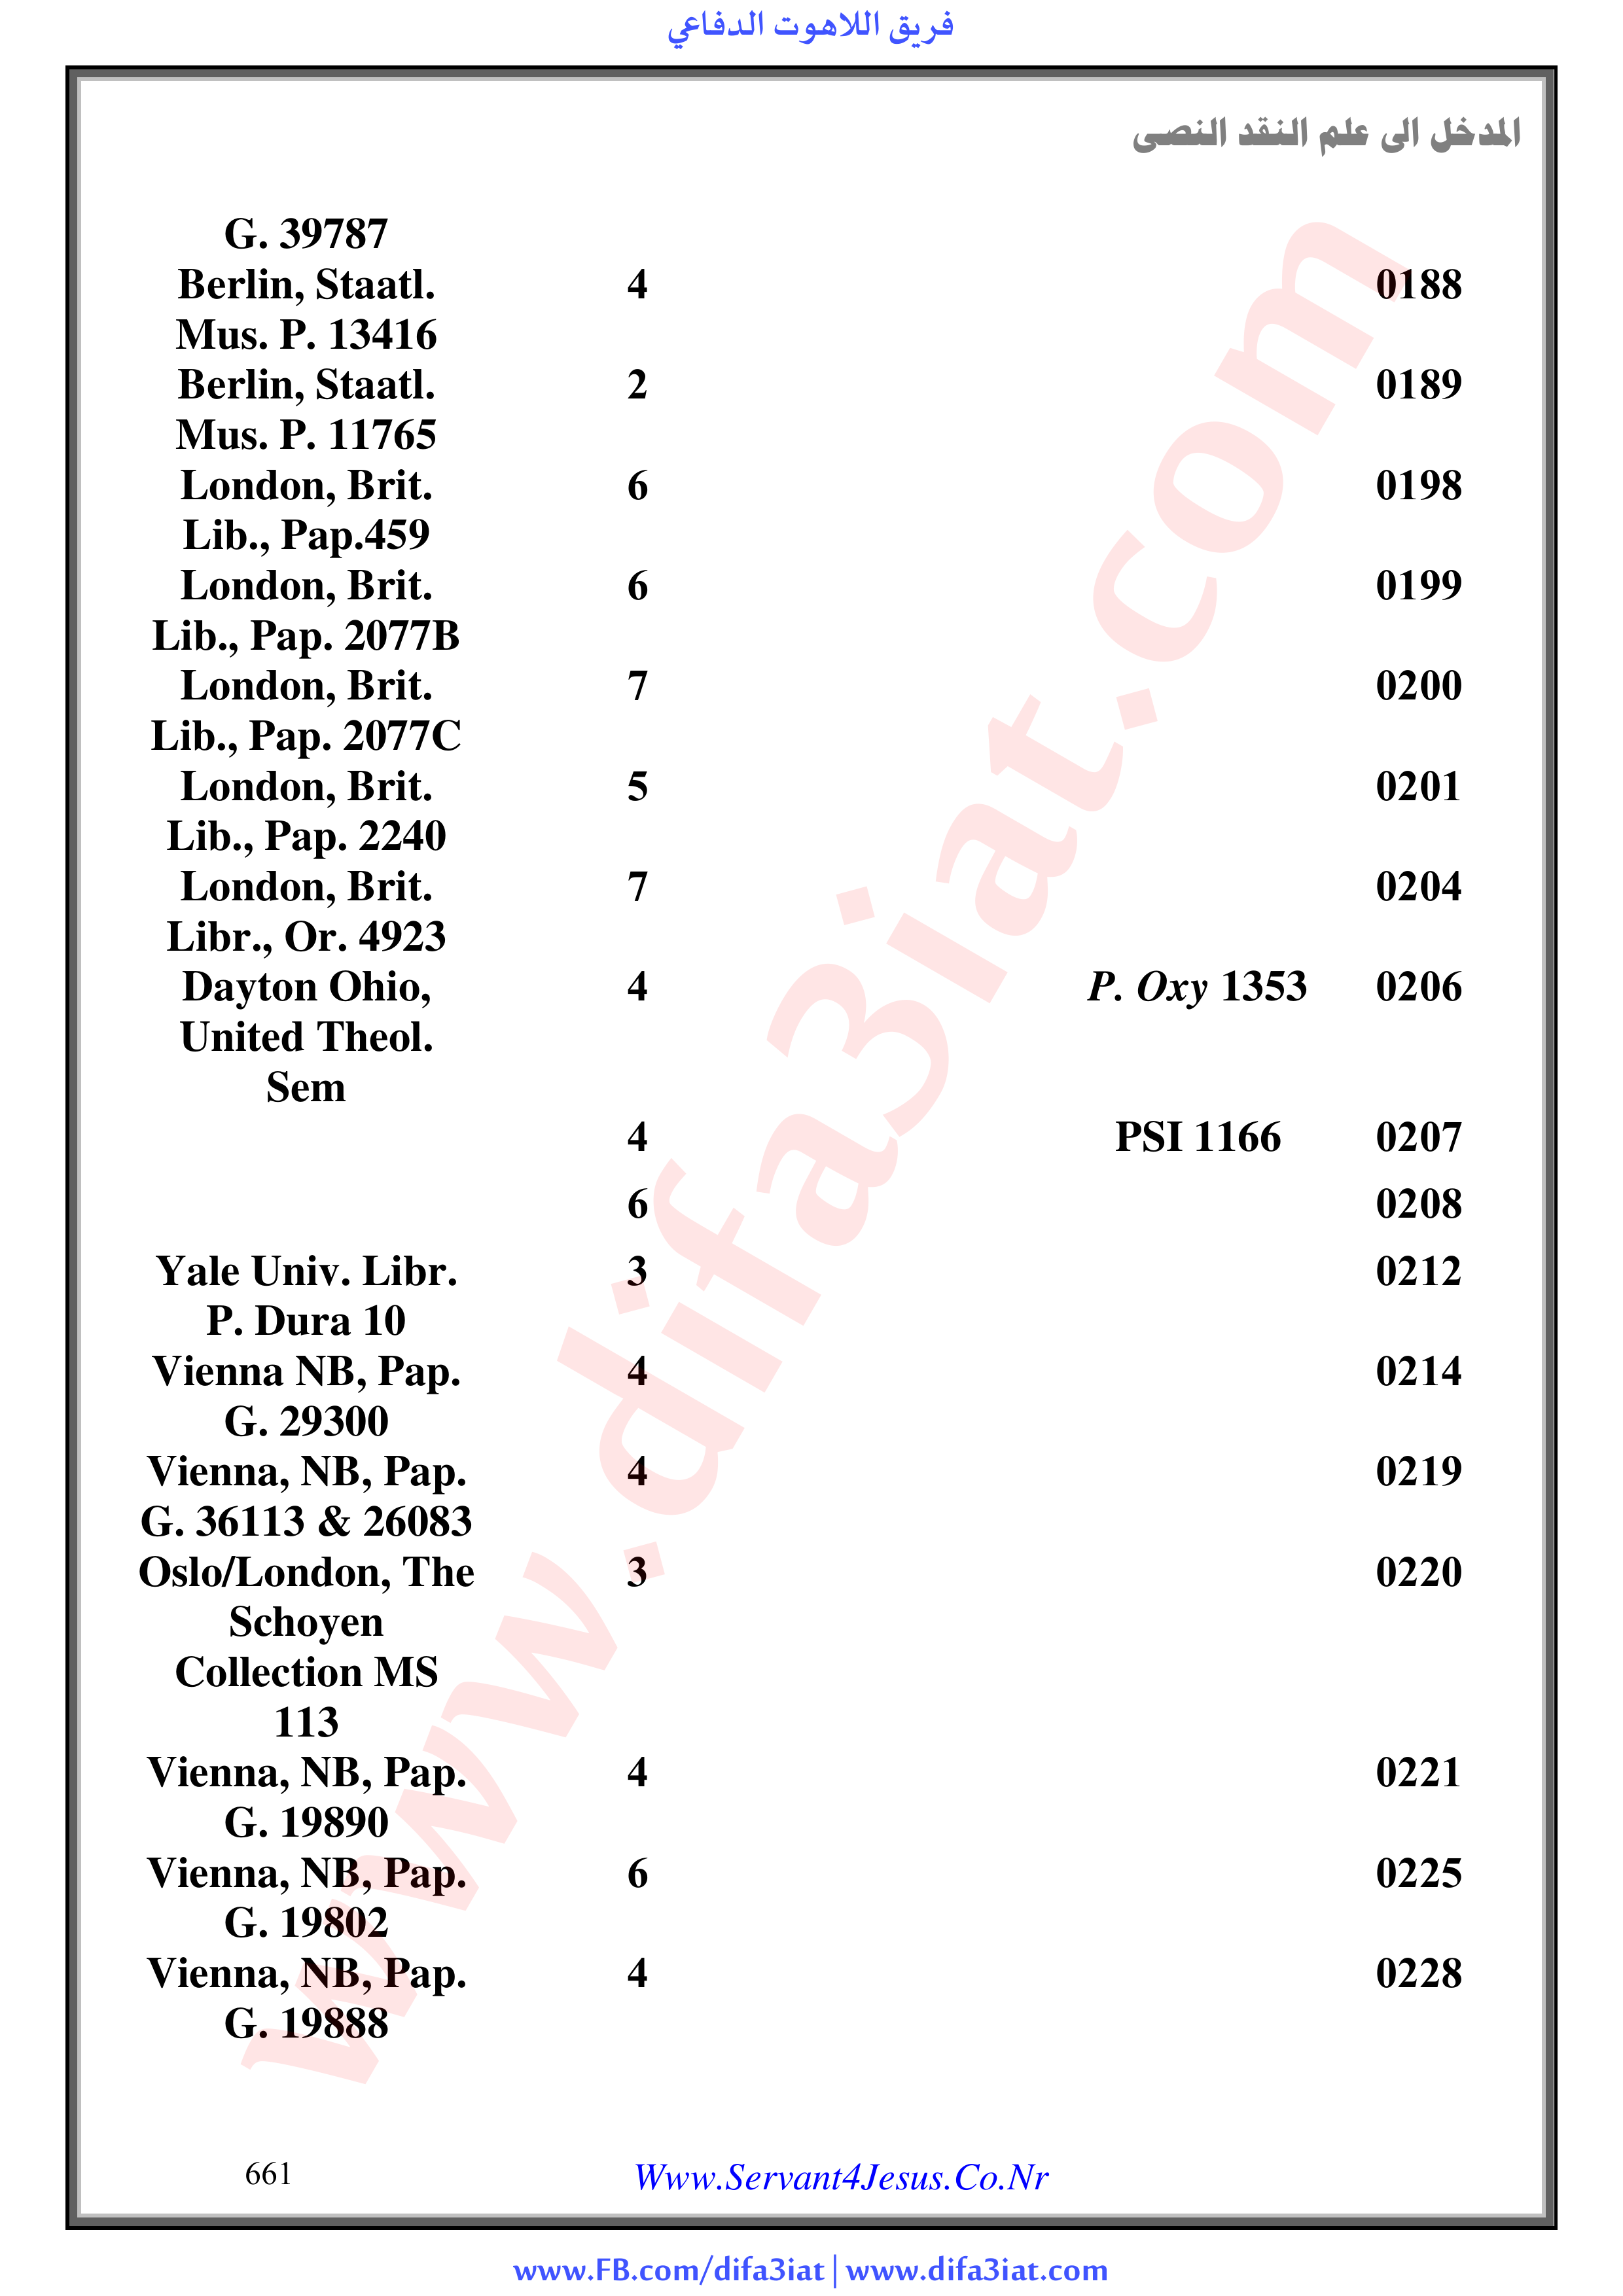 فريق اللاهوت الدفاعي
المدخل الى علم النقد النصى
G. 39787
0188 4 Berlin, Staatl.
Mus. P. 13416
0189 2 Berlin, Staatl.
Mus. P. 11765
0198 6 London, Brit.
Lib., Pap.459
0199 6 London, Brit.
Lib., Pap. 2077B
0200 7 London, Brit.
Lib., Pap. 2077C
0201 5 London, Brit.
Lib., Pap. 2240
0204 7 London, Brit.
Libr., Or. 4923
0206 P. Oxy 1353 4 Dayton Ohio,
United Theol.
Sem
0207 PSI 1166 4
0208 6
0212 3 Yale Univ. Libr.
P. Dura 10
0214 4 Vienna NB, Pap.
G. 29300
0219 4 Vienna, NB, Pap.
G. 36113 & 26083
0220 3 Oslo/London, The
Schoyen
Collection MS
113
0221 4 Vienna, NB, Pap.
G. 19890
0225 6 Vienna, NB, Pap.
G. 19802
0228 4 Vienna, NB, Pap.
G. 19888
www.difa3iat.com
661 Www.Servant4Jesus.Co.Nr
www.FB.com/difa3iat | www.difa3iat.com